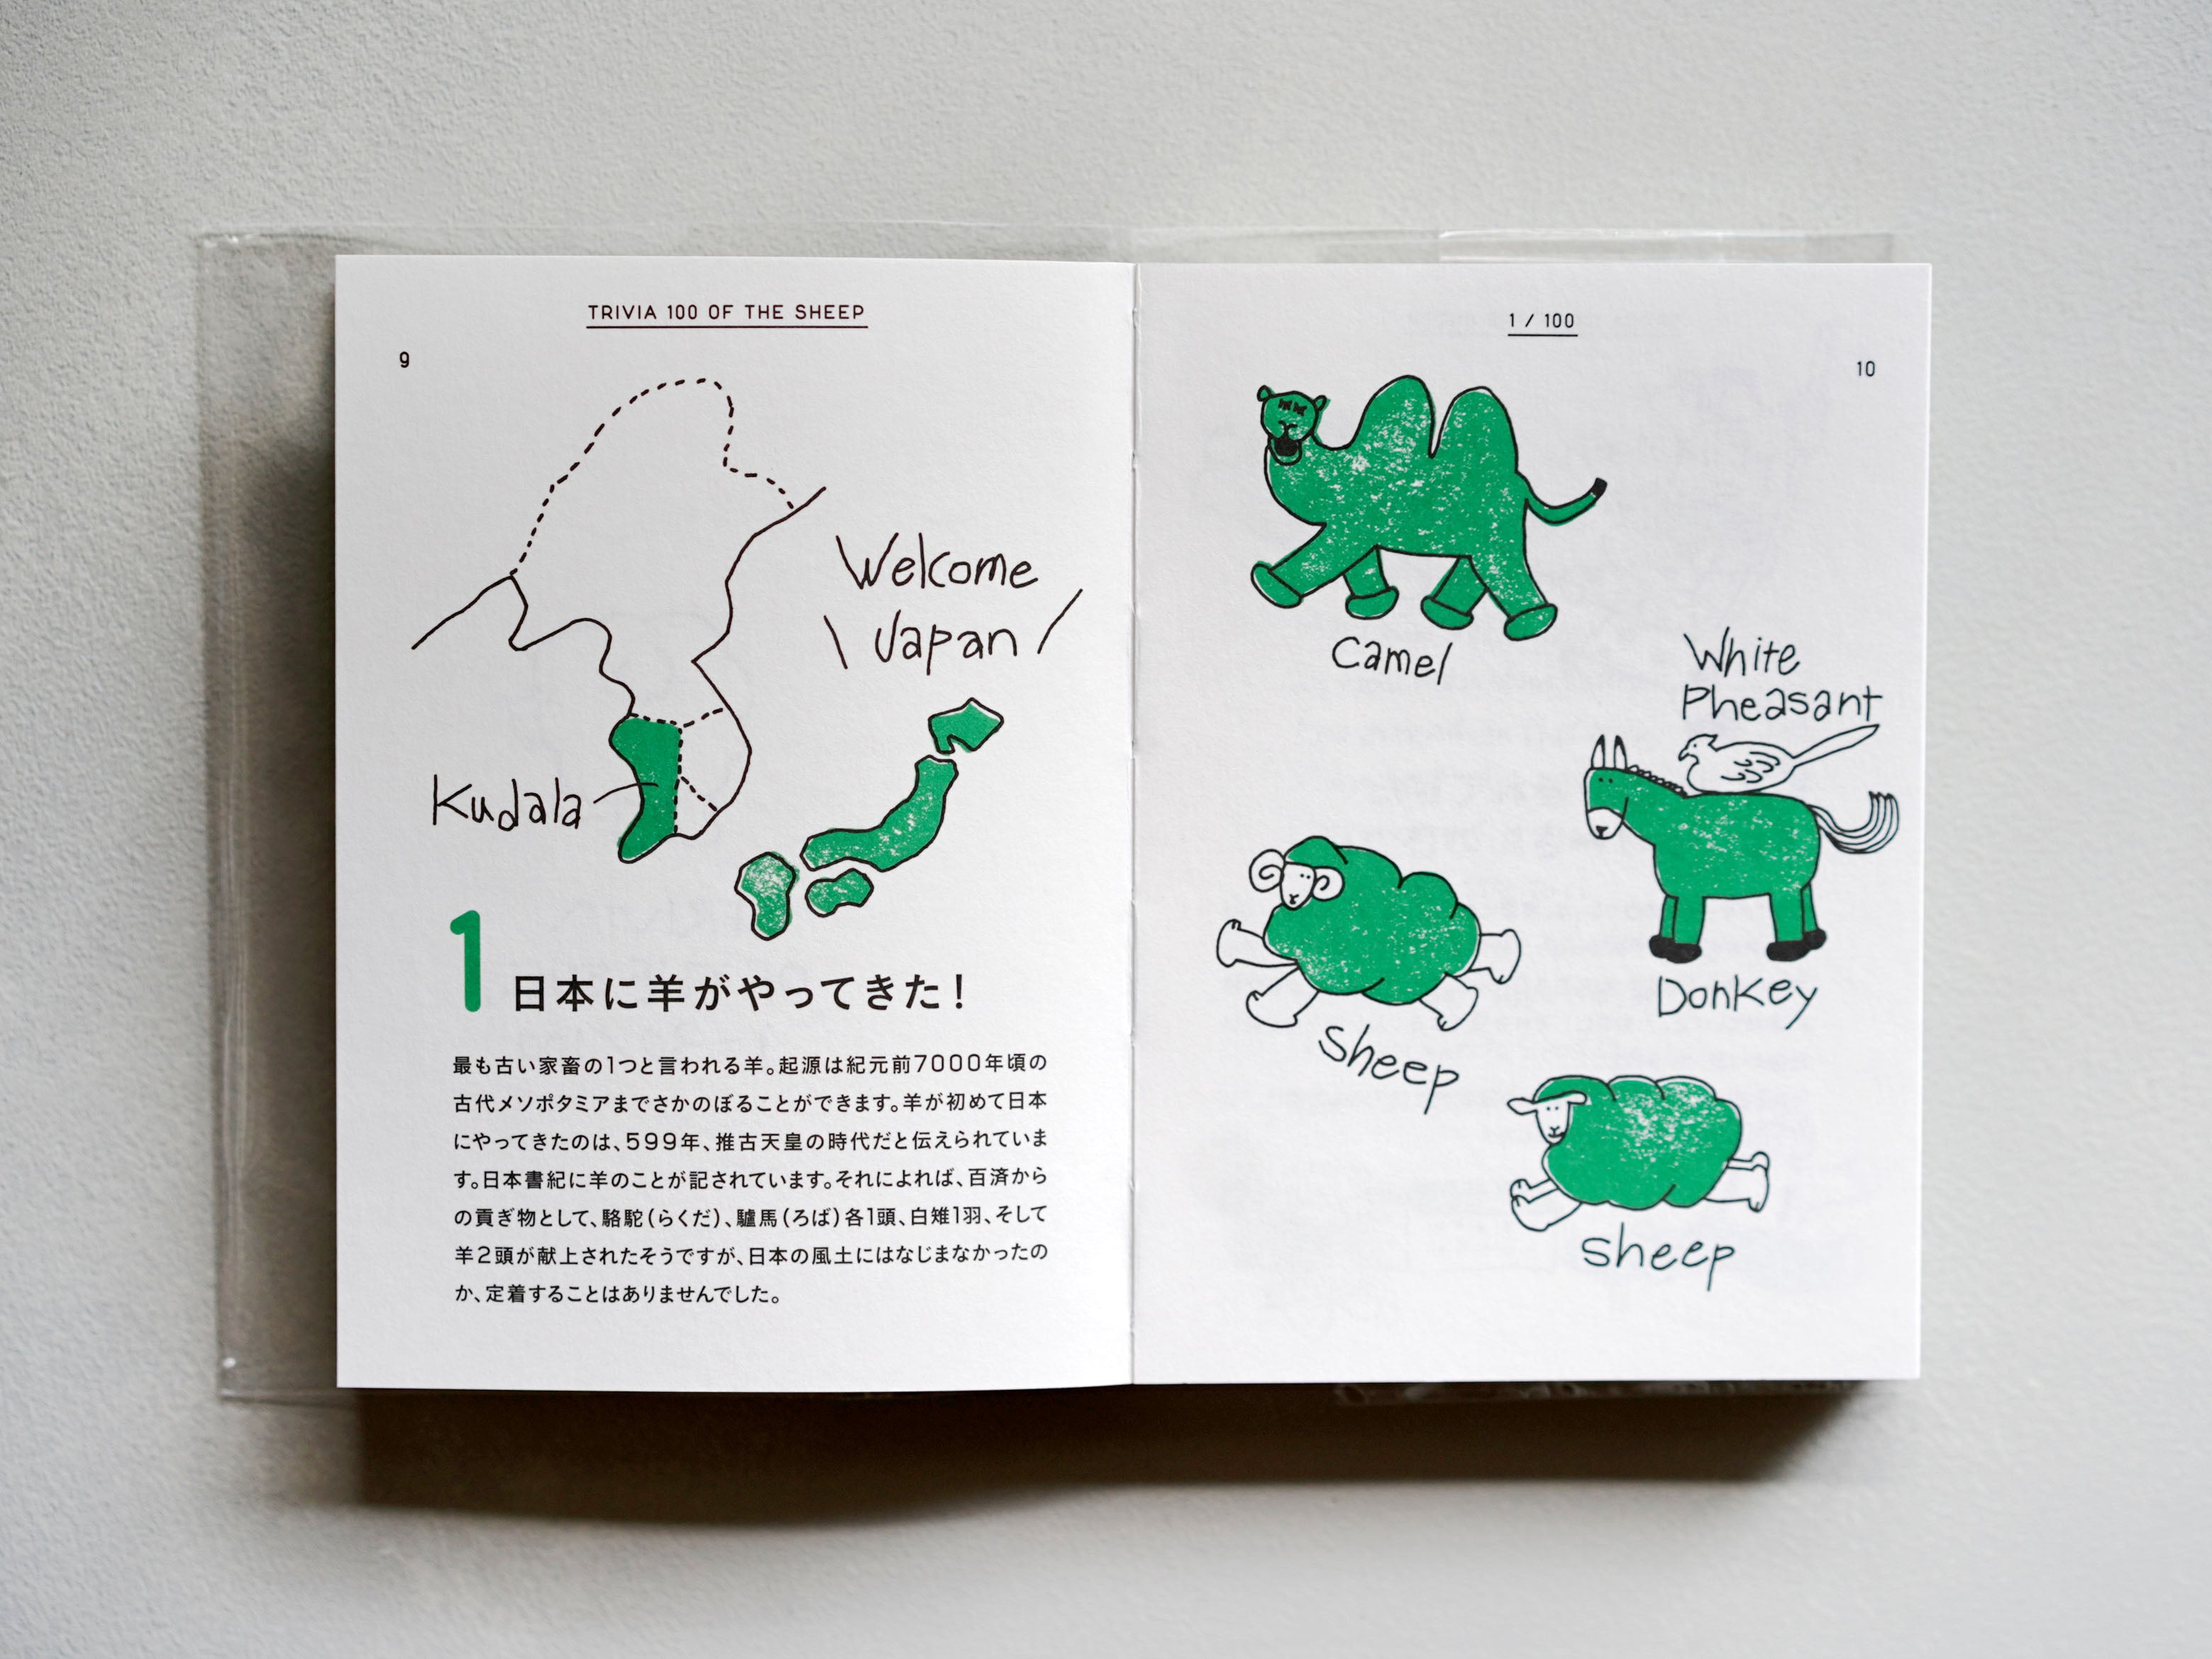 TRIVIA 100 OF THE SHEEP
9
Welcome
\ Japan /
Kudala
1 日本に羊がやってきた！
最も古い家畜の1つと言われる羊。起源は紀元前7000年頃の
古代メソポタミアまでさかのぼることができます。羊が初めて日本
にやってきたのは、599年、推古天皇の時代だと伝えられていま
す。日本書紀に羊のことが記されています。それによれば、百済から
の貢ぎ物として、駱駝（らくだ）、驢馬（ろば）各1頭、白雉1羽、そして
羊2頭が献上されたそうですが、日本の風土にはなじまなかったの
か、定着することはありませんでした。
1 / 100
10
Camel
White
Pheasant
Donkey
Sheep
Sheep